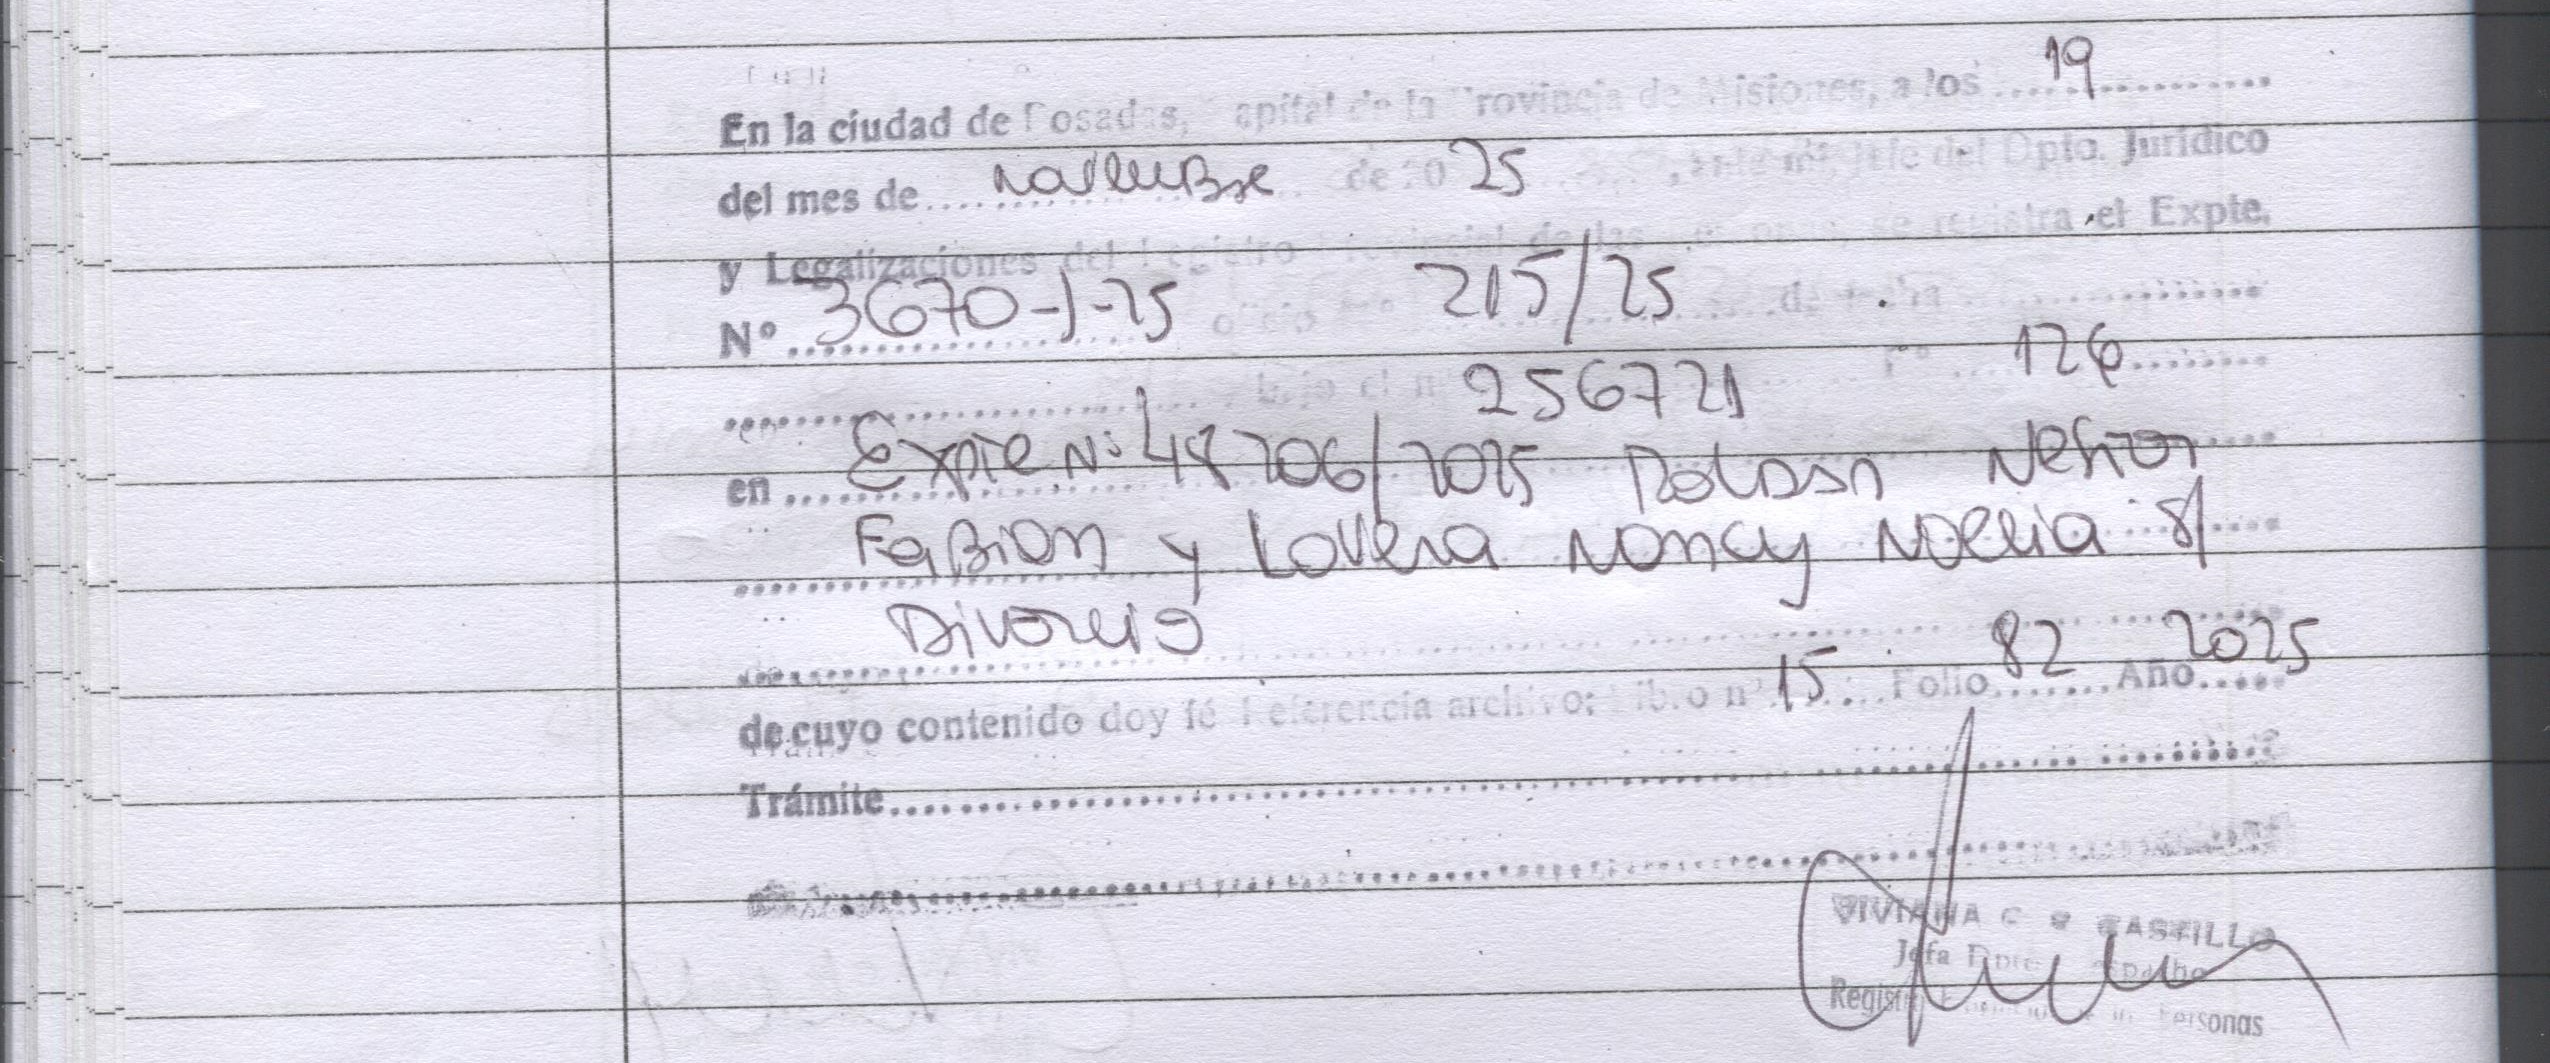 En la ciudad de Posadas, Capital de la Provincia de Misiones, a los 19
del mes de noviembre de 2025, ante mi Jefe del Dpto. Jurídico
y Legalizaciones del Registro Provincial de las Personas, se registra el Expte.
Nº 3670-J-25 oficio Nº 215/25 de fecha
bajo el nº 256721 Fº 126
en Expte Nº 48206/2025 Nestor
Fabian y Lovera Nancy Noelia s/
Divorcio
de cuyo contenido doy fé Referencia archivo: Libro nº 15 Folio 82 Año 2025
Trámite
VIVIANA C CASTILLO
Jefa Dpto. Despacho
Registro Personas